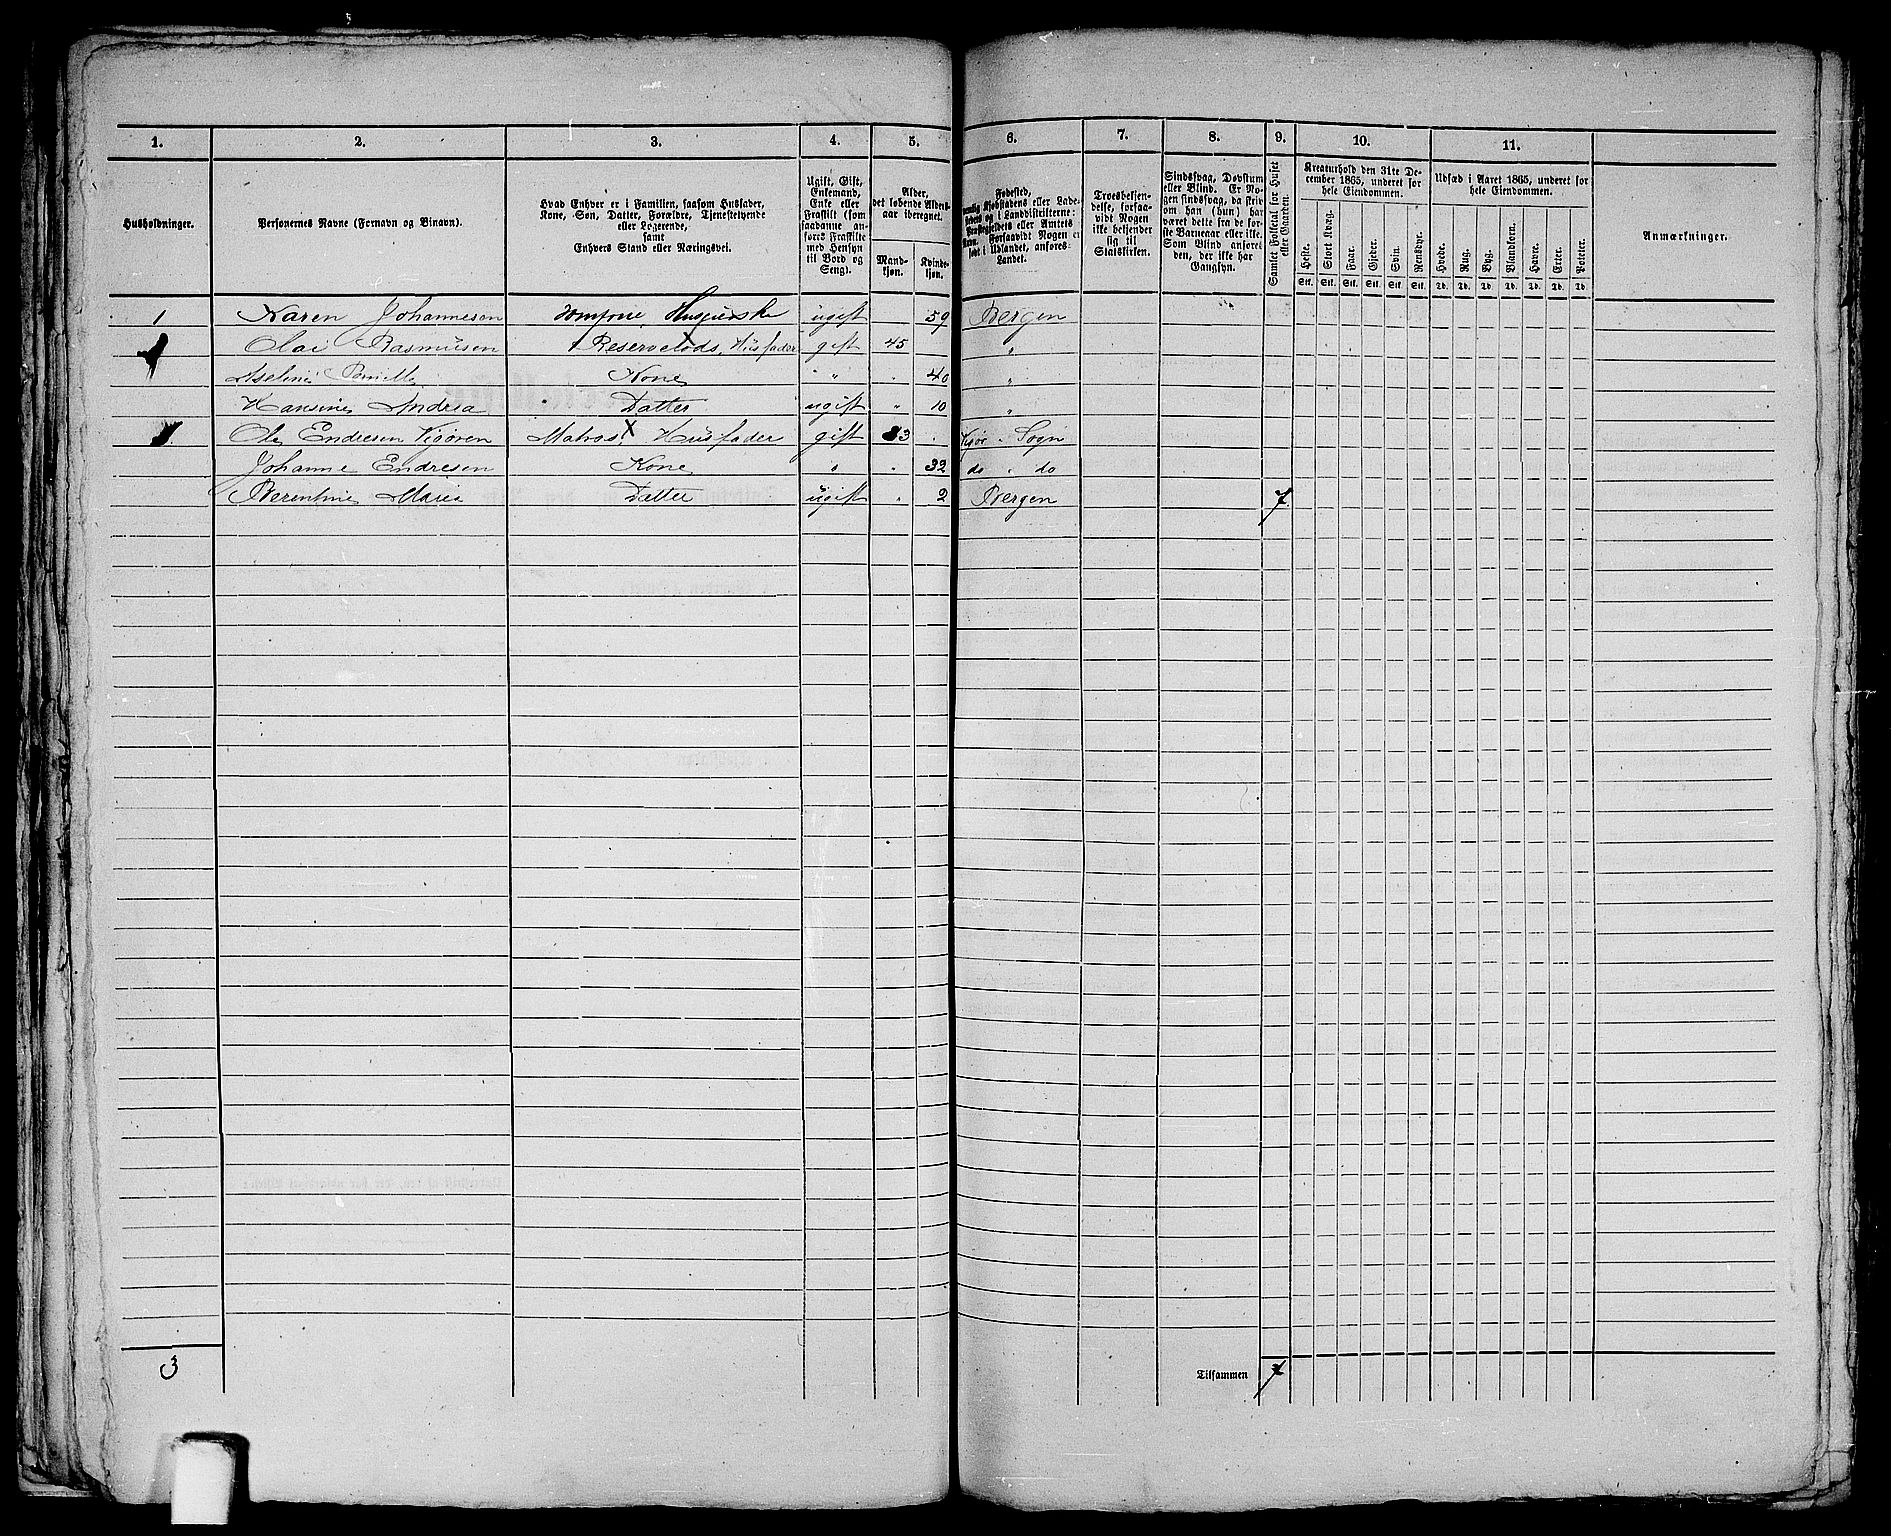 1. 2. 3. 4. 5. 6. 7. 8. 9. 10. 11.
Husholdninger.
Personernes Navne (Fornavn og Binavn).
Hvad Enhver er i Familien, saasom Husfader,
Kone, Søn, Datter, Forældre, Tjenestetyende
eller Logerende,
samt
Enhvers Stand eller Næringsvei.
Ugift, Gift,
Enkemand,
Enke eller
Fraskilt (som
saadanne an-
føres Fraskilte
med Hensyn
til Bord og
Seng).
Alder,
det løbende Alders-
aar iberegnet.
Mand-
kjøn.
Kvinde-
kjøn.
Fødested,
Kjøbstadens eller Lade-
i Landdistrikterne:
eller Amtets
Forsaavidt Nogen er
i Udlandet, anføres
Landet.
Troesbekjen-
delse, forsaa-
vidt Nogen
ikke bekjender
sig til
Statskirken.
Sindssvag, Døvstum
eller Blind. Er No-
gen sindssvag, da skriv
om han (hun) har
været dette fra de før-
ste Barneaar eller ikke.
Som Blind anføres
den, der ikke har
Gangsyn.
Samlet Folketal for Huset
eller Gaarden.
Kreaturhold den 31te De-
cember 1865, underet for
hele Eiendommen.
Heste. Stort Kvæg. Faar. Gjeder. Svin. Rensdyr.
Stk. Stk. Stk. Stk. Stk. Stk.
Udsæd i Aaret 1865, underet for
hele Eiendommen.
Hvede. Rug. Byg. Blandkorn. Havre. Erter. Poteter.
Td. Td. Td. Td. Td. Td. Td.
Anmærkninger.
1 Karen Johannesen Jomfrue, ugift 59 Bergen
Olai Rasmusen Reservelods, Husfader gift 45 "
Kone " " 40 "
Hansine Andrea Datter ugift " 10 "
Ole Endresen Matros, Husfader gift 33 Sogn
Johanne Endresen Kone " " 32 do " do
Berentine Maria Datter ugift " 2 Bergen 7
3 Tilsammen 7